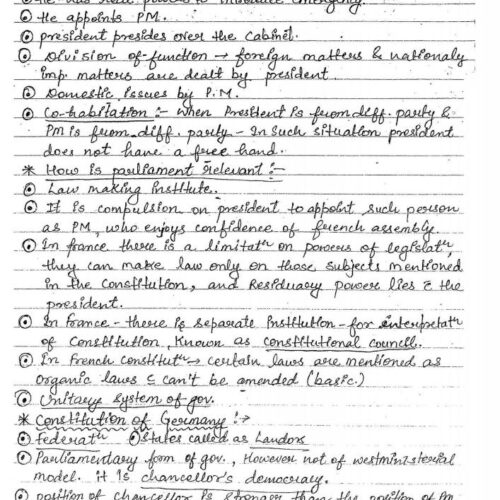 ⊙ He has
⊙ He appoints PM.
⊙ president presides over the cabinet.
⊙ Division of function → foreign matters & nationaly
imp matters are dealt by president
⊙ Domestic issues by P.M.
⊙ Co-habitation :- When President is from diff. party &
PM is from diff. party - In such situation president
does not have a free hand.
* How is parliament relevant :-
⊙ Law making institute.
⊙ It is compulsion on president to appoint such person
as PM, who enjoys confidence of french assembly.
⊙ In france there is a limitatⁿ on powers of legislatʳ,
they can make law only on those subjects mentioned
in the constitution, and residuary power lies c̄ the
president.
⊙ In France - there is separate Institution - for interpretatⁿ
of Constitution, Known as constitutional council.
⊙ In French Constitutⁿ → certain laws are mentioned as
organic laws c̄ can't be amended (basic)
⊙ Unitary system of gov.
* Constitution of Germany :→
⊙ Federatⁿ ⊙ States called as Landors
⊙ Parliamentary form of gov., However not of westministerial
model. it is chancellor's democracy.
⊙ position of chancellor is stronger than the position of PM